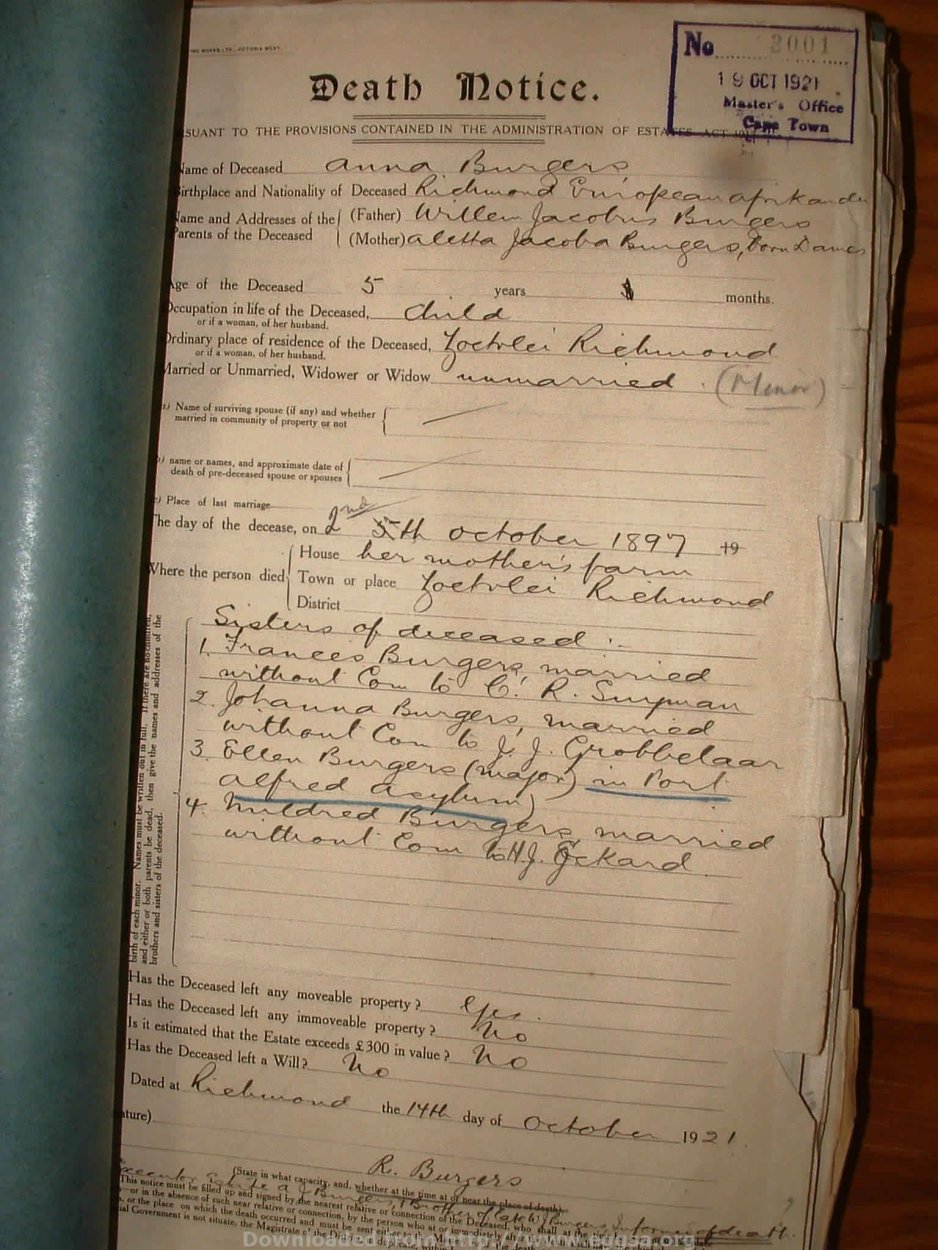 No 2001
19 OCT 1921
Master's Office
Cape Town
Death Notice.
SUANT TO THE PROVISIONS CONTAINED IN THE ADMINISTRATION OF ESTATES ACT
Name of Deceased Anna Burgers
Birthplace and Nationality of Deceased Richmond European afrikander
Name and Addresses of the Parents of the Deceased
(Father) Willem Jacobus Burgers
(Mother) aletta Jacoba Burgers, born Davies
Age of the Deceased 5 years months.
Occupation in life of the Deceased, Child
or if a woman, of her husband.
Ordinary place of residence of the Deceased, Zoetvlei Richmond
or if a woman, of her husband.
Married or Unmarried, Widower or Widow unmarried. (Minor)
Name of surviving spouse (if any) and whether
married in community of property or not
name or names, and approximate date of
death of pre-deceased spouse or spouses
Place of last marriage
The day of the decease, on 2nd 5th October 1897 19
Where the person died
House her mother's farm
Town or place Zoetvlei Richmond
District
birth of each minor. Names must be written out in full. If there are no children,
and either or both parents be dead, then give the names and addresses of the
brothers and sisters of the deceased.
Sisters of deceased:
1. Frances Burgers, married
without Com to C. R. Snyman
2. Johanna Burgers, married
without Com to J. J. Grobbelaar
3. Ellen Burgers (major) in Port
alfred asylum)
4. Mildred Burgers, married
without Com to H.J. Eckard.
Has the Deceased left any moveable property? Yes.
Has the Deceased left any immoveable property? No
Is it estimated that the Estate exceeds £300 in value? No
Has the Deceased left a Will? No
Dated at Richmond the 14th day of October 1921.
ature)
R. Burgers
(State in what capacity, and, whether at the time at or near the place of death).
Brother of late W J Burgers Informer of death.
This notice must be filled up and signed by the nearest relative or connection of the Deceased, who
or in the absence of such near relative or connection, by the person who at or immediately
or the place on which the death occurred and must be sent
ial Government is not situate, the Magistrate of the District
Downloaded from http://www.eggsa.org